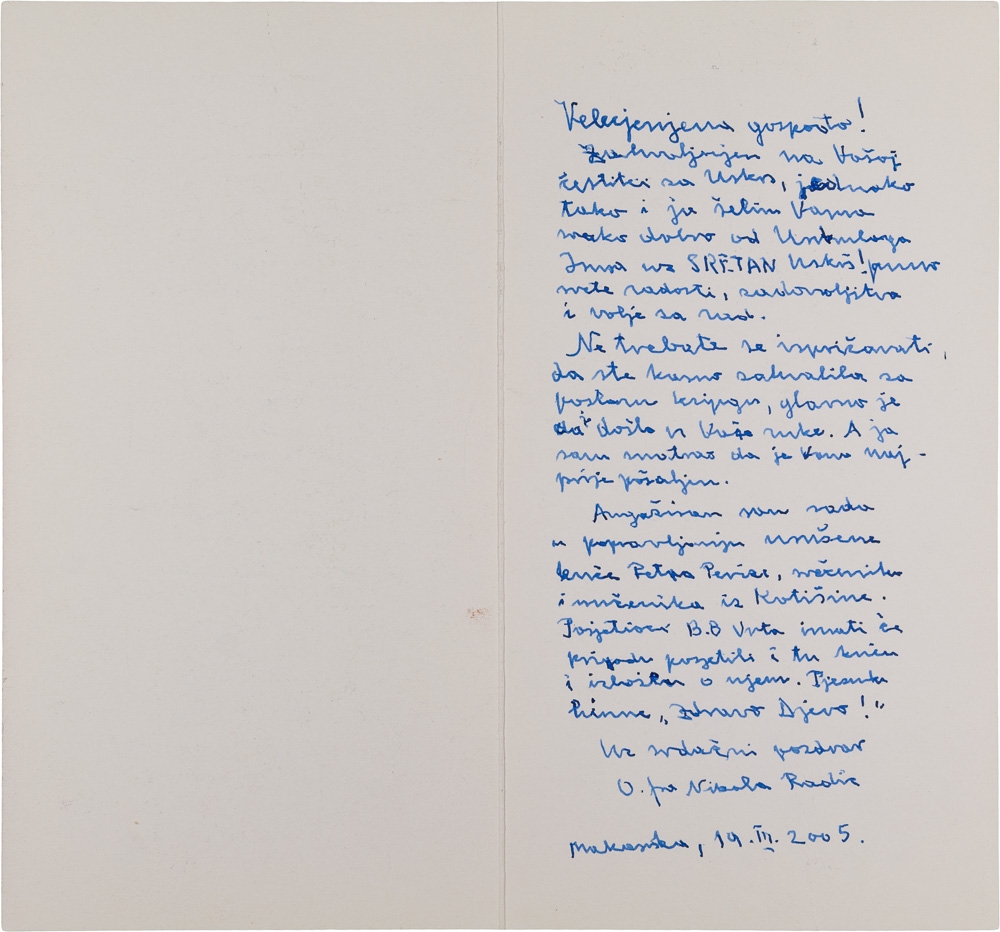 Velecjenjena gospođo!
Zahvaljujem na Vašoj
čestitci za Uskrs, jednako
tako i ja želim Vama
svako dobro od Uskrsloga
Isusa uz SRETAN Uskrs! puno
svete radosti, zadovoljstva
i volje za rad.
Ne trebate se ispričavati,
da ste kasno zahvalila za
poslanu knjigu, glavno je
da je došla u Vaše ruke. A ja
sam smatrao da je Vama naj-
prije pošaljem.
Angažiran sam sada
u popravljanju uništene
kuće Petra Perice, svećenika
i mučenika iz Kotišine.
Posjetioci B.B Vrta imati će
prigodu posjetiti i tu kuću
i izložbu o njem. Pjesnika
himne „Zdravo Djevo!"
Uz srdačni pozdrav
O. fra Nikola Radić
Makarska, 19. III. 2005.